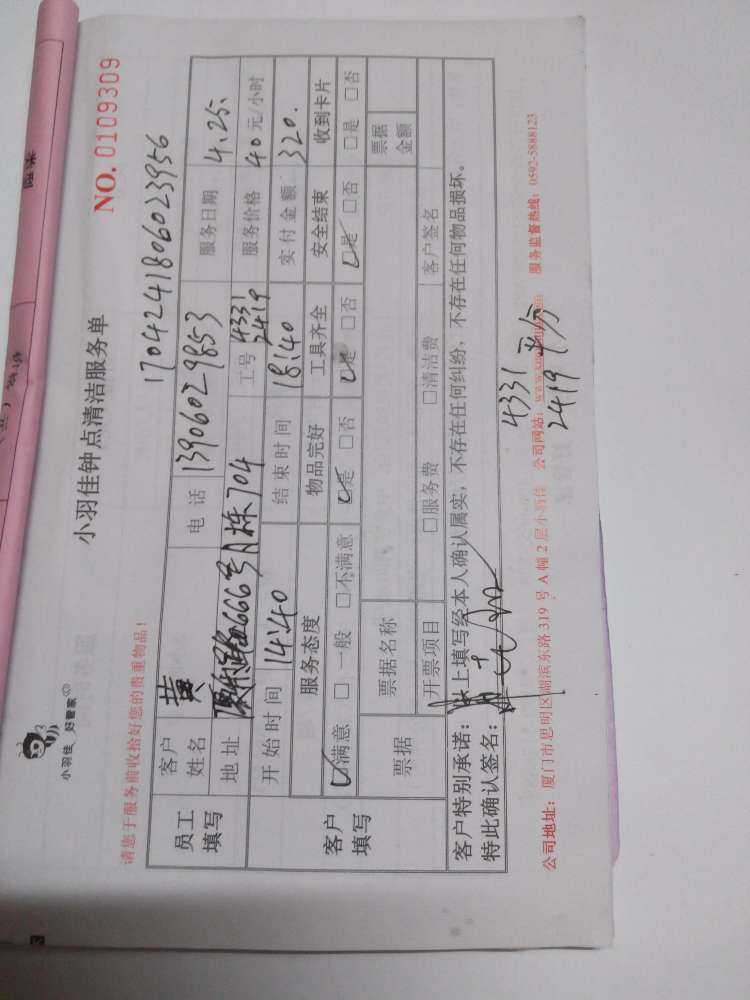 小羽佳 好管家
小羽佳钟点清洁服务单
NO. 0109309
请您于服务前收拾好您的贵重物品！
1704241806023956
员工填写
客户姓名 黄 电话 13906029853 服务日期 4.25.
地址 666号A栋704 工号 4331 2419 服务价格 40元/小时
客户填写
开始时间 14:40 结束时间 18:40 实付金额 320.
服务态度 物品完好 工具齐全 安全结束 收到卡片
☑满意 □一般 □不满意 ☑是 □否 ☑是 □否 ☑是 □否 □是 □否
票据 票据名称 票据金额
开票项目 □服务费 □清洁费 客户签名
客户特别承诺：以上填写经本人确认属实，不存在任何纠纷，不存在任何物品损坏。
特此确认签名：
4331
2419 平分
公司地址：厦门市思明区湖滨东路319号A幢2层小羽佳 公司网站： 服务监督热线：0592-5888123